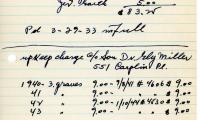 5.00
$83.25
Pd 3-29-33 in full
upkeep charge c/o Son Dr. Ely Miller
551 Pl.
1940- 3 graves 9.00 - 7/8/41 # 4606 $ 9.00
41 " 9.00 - 9.00
42 " 9.00 - 1/10/44 # 4830 $ 9.00
43 " 9.00 - 9.00